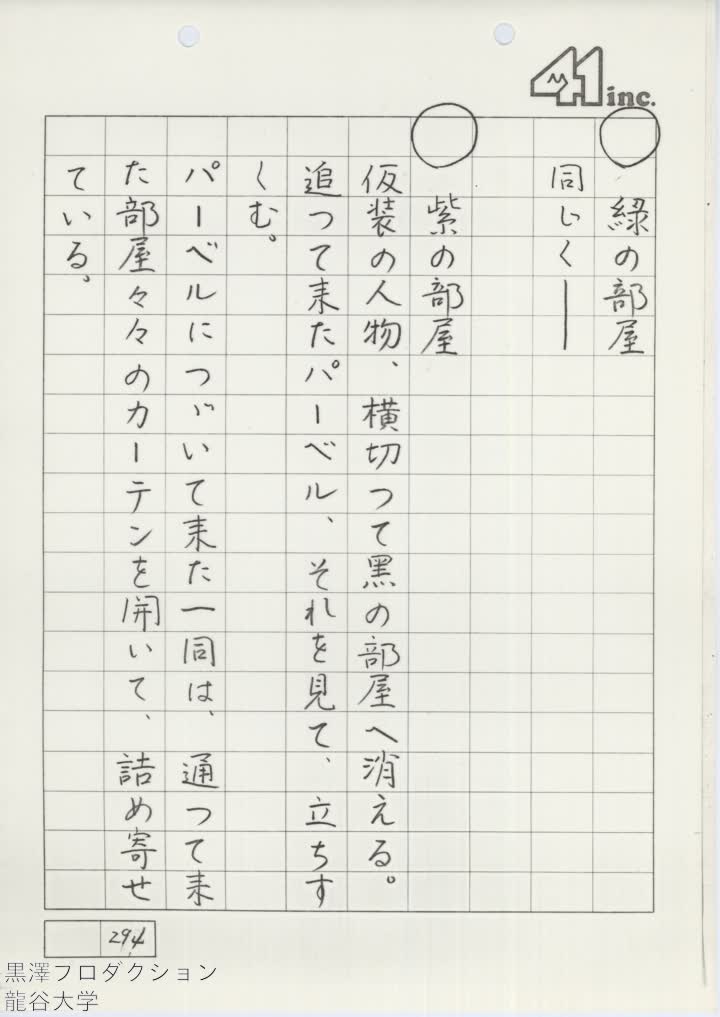 41 inc.
○ 緑の部屋
同じく――
○ 紫の部屋
仮装の人物、横切つて黒の部屋へ消える。
追つて来たパーベル、それを見て、立ちす
くむ。
パーベルにつゞいて来た一同は、通つて来
た部屋々々のカーテンを開いて、詰め寄せ
ている。
294
黒澤プロダクション
龍谷大学